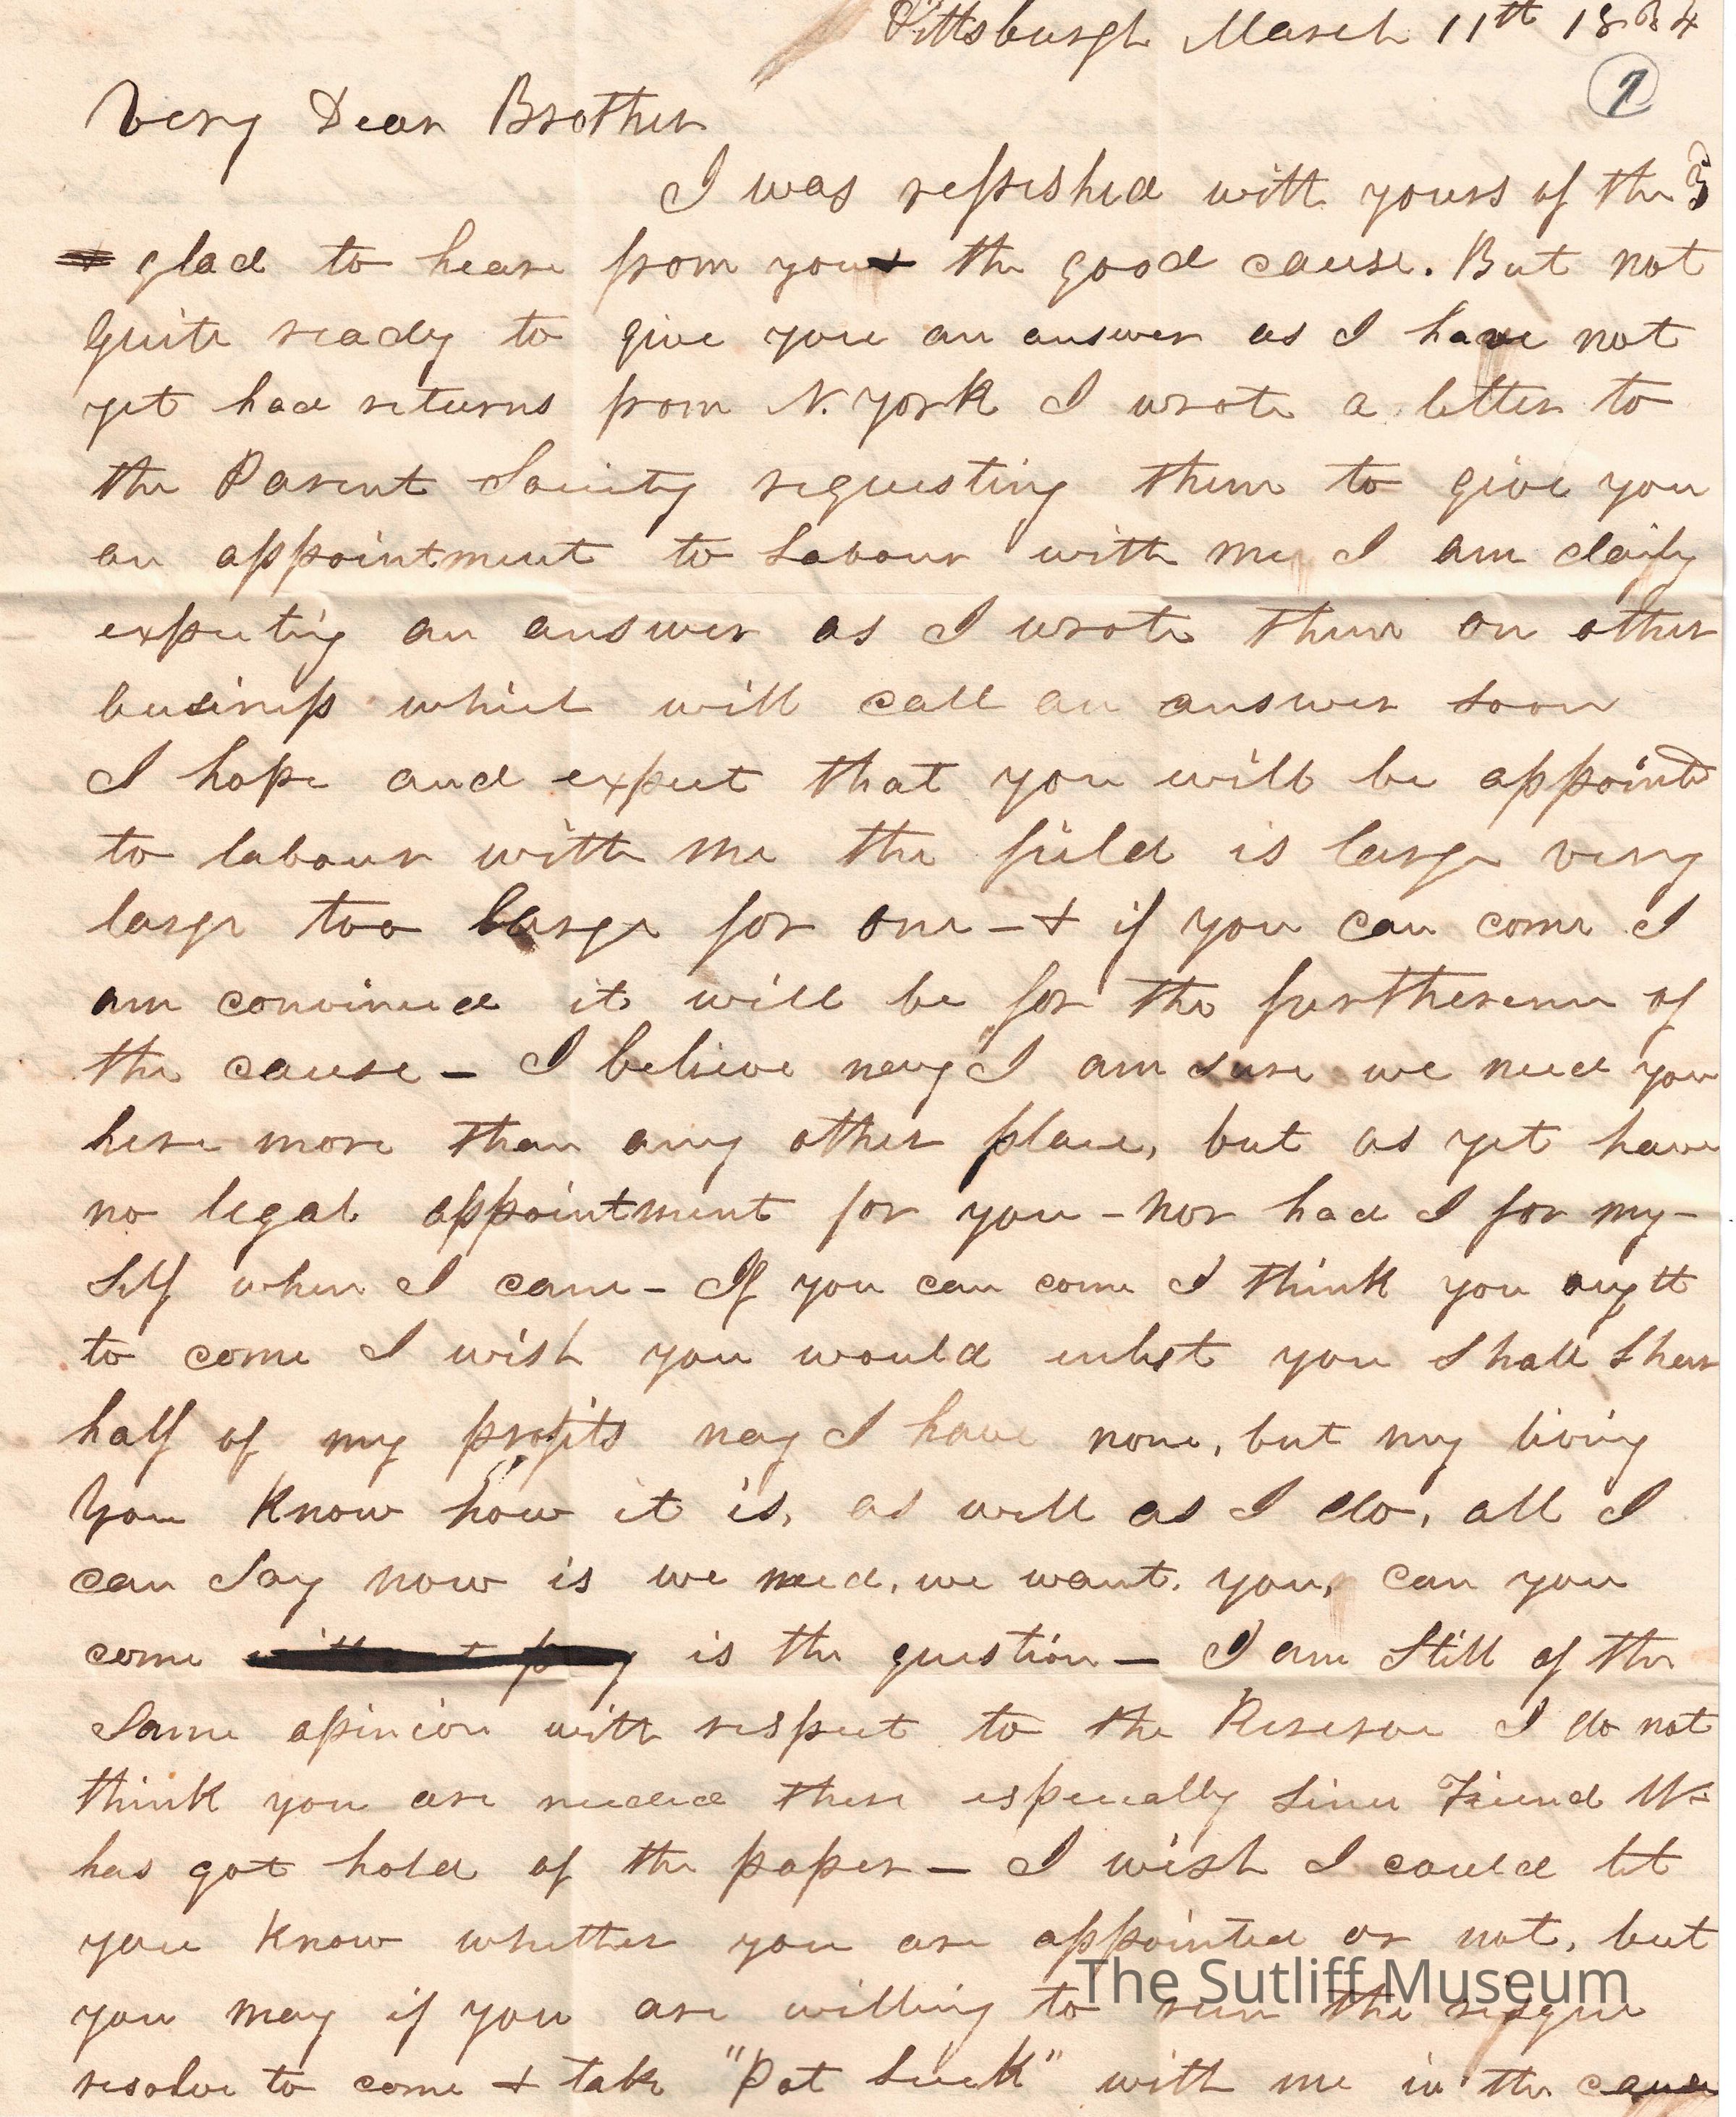 Pittsburgh March 11th 1834
1
Very Dear Brother
I was refreshed with yours of the 3
glad to hear from you & the good cause. But not
quite ready to give you an answer as I have not
yet had returns from N. York I wrote a letter to
the Parent Society requesting them to give you
an appointment to Labour with me I am daily
expecting an answer as I wrote them on other
business which will call an answer soon
I hope and expect that you will be appointd
to labour with me the field is large very
large too large for one - & if you can come I
am convinced it will be for the furtherence of
the cause - I believe nay I am sure we need you
here more than any other place, but as yet have
no legal appointment for you - nor had I for my-
self when I came - If you can come I think you ought
to come I wish you would enlist you shall share
half of my profits nay I have none, but my living
You Know how it is, as well as I do, all I
can say now is we need, we want, you, can you
come without pay is the question - I am still of the
same opinion with respect to the Reserve I do not
think you are needed there especially since Friend W-
has got hold of the paper - I wish I could let
you Know whether you are appointed or not, but
you may if you are willing to run the risque
resolve to come & take "Pot Luck" with me in the cause
The Sutliff Museum